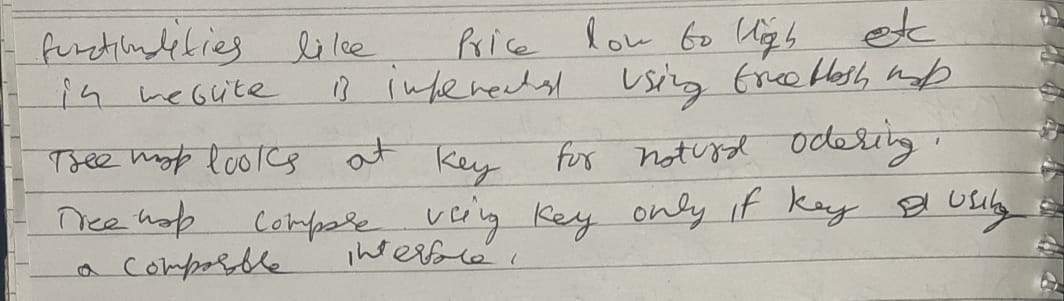 functionalities like Price low to High etc
in website is implemented using tree Hash map
Tree map looks at key for natural odering.
Tree map compare using key only if key is using
a comparable interface.